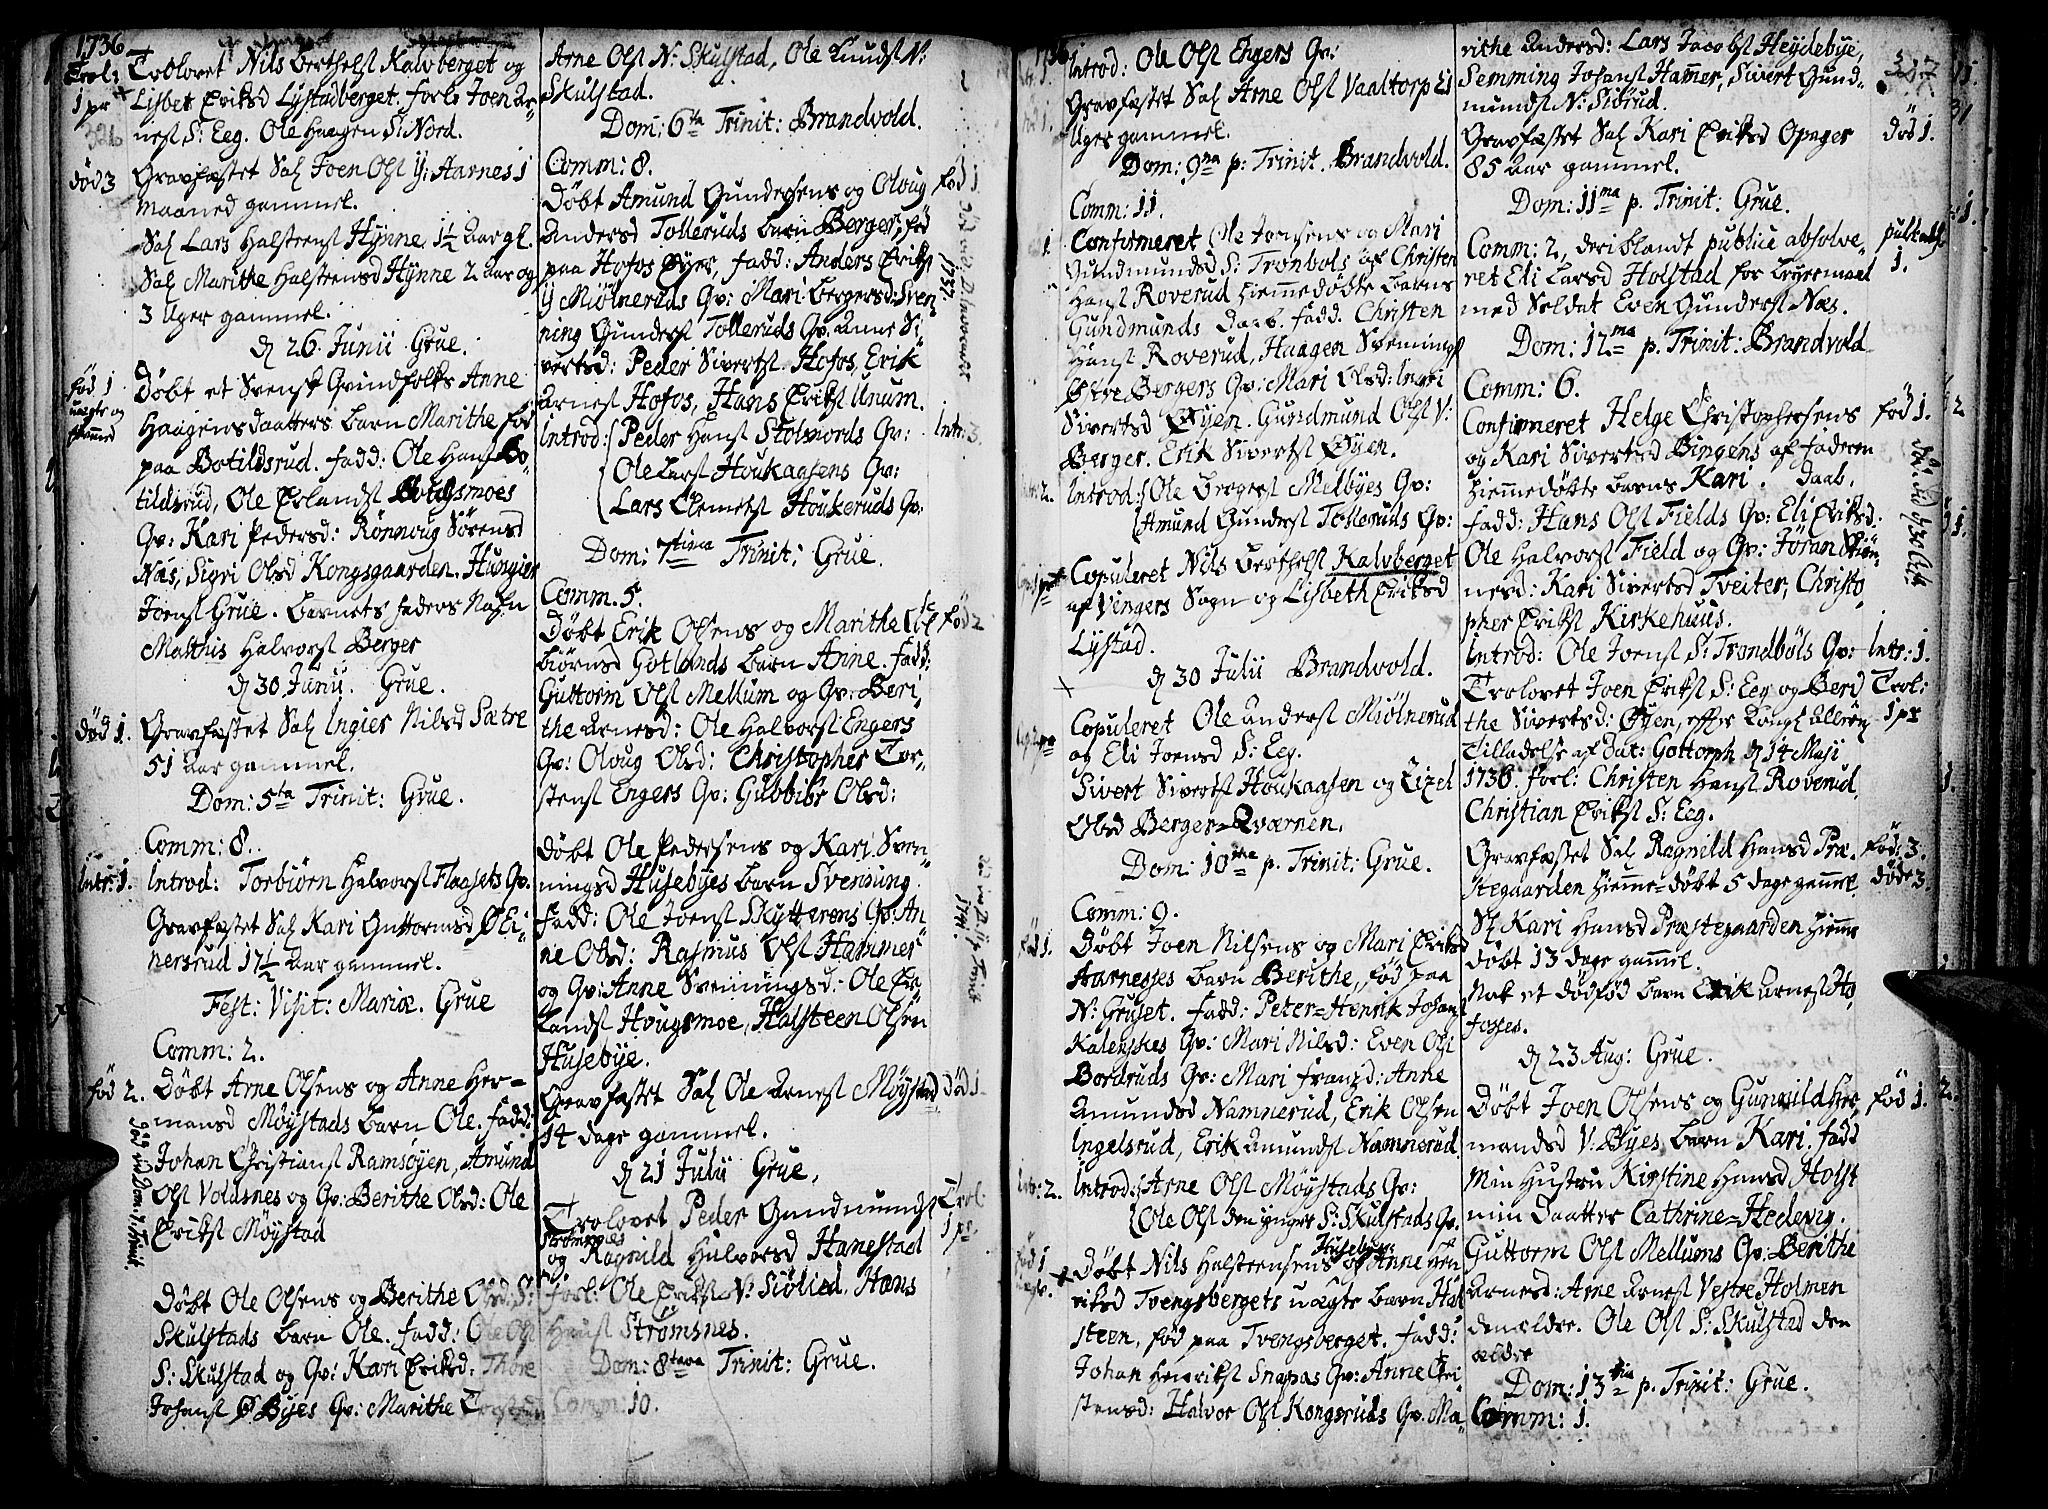 1736
Trol:
1 pr
Trolovet Nils Berthelsl Kalvberget og
Lisbet Eriksd Lystadberget. forl: Joen Ar-
nesl S: Eeg. Ole Haagen S: Nord.
død 3
Gravfæstet Sal Joen Olsl Y: Aarnes 1
maaned gammel.
Sal Lars Halstensl Hÿnne 1½ Aar gl.
Sal Marithe Halstensd Hÿnne 2 Aar og
3 Uger gammel.
d 26 Junii Grue.
fød 1
uægte og
fremmed
Døbt et Svensk Qvindfolks Anne
Haagensdaatters barn Marithe fød
paa Botildsrud. fadd: Ole Hansl Bo-
tildsrud, Ole Erlandsl Hougsmoes
Qv: Kari Pedersd: Rönnoug Sörensd
Næs, Sigri Olsd Kongsgaarden. Hungier
Joensl Grue. Barnets faders Nafn
Matthis Halvorsl Berger
d 30 Junii. Grue.
død 1.
Gravfæstet Sal Ingier Nilsd Sætre
51 Aar gammel.
Dom: 5ta Trinit: Grue.
Comm: 8.
Intr: 1.
Introd: Torbiörn Halvorsl Flaasets Qv.
Gravfæstet Sal Kari Guttormsd Ø Ei-
nersrud 17½ Aar gammel.
Fest: Visit: Mariæ. Grue
Comm: 2.
fød 2.
Døbt Arne Olsens og Anne Her-
mansd Möystads barn Ole. fadd:
Johan Christiansl Ramsöyen, Amund
Olsl Volusnes og Qv: Berithe Olsd: Ole
Eriksl Möystad
Døbt Ole Olsens og Berithe Olsd: S:
Skulstads barn Ole. fadd: Ole Olsl
S: Skulstad og Qv: Kari Eriksd: Thore
Johansl Ø Byes Qv: Marithe
Arne Olsl N: Skulstad, Ole Knudsl N:
Skulstad.
Dom: 6ta Trinit: Brandvold.
Comm: 8.
fød 1.
Døbt Amund Gundersens og Oloug
Andersd Tolleruds barn Berger, fød
paa Hofos Øyer, fadd: Anders Eriksl
Y Miölneruds Qv: Mari Bergersd: Sven-
ning Gundersl Tolleruds Qv. Anne Si-
vertsd: Peder Sivertsl Hofos, Erik
Arnesl Hofos, Hans Eriksl Unum.
Intr: 3.
Introd: Peder Hansl Stolnords Qv:
Ole Larsl Houkaasens Qv:
Lars Clemetsl Houkeruds Qv:
Dom: 7tima Trinit: Grue.
Comm. 5.
fød 2
Døbt Erik Olsens og Marithe
Biörnsd Gotlands barn Arne. fadd:
Guttorm Olsl Mellum og Qv: Beri-
the Arnesd: Ole Halvorsl Engers
Qv: Oloug Olsd: Christopher Tor-
stensl Engers Qv: Gubbiör Olsd:
Døbt Ole Pedersens og Kari Sven-
ningsd Husebyes barn Svennung.
fadd: Ole Joensl Skytterens Qv: An-
ne Olsd: Rasmus Olsl Hammer
og Qv: Anne Svenningsd: Ole Er-
landsl Hougsmoe, Halsteen Olsen
Husebye.
død 1.
Gravfæstet Sal Ole Arnesl Möystad
14 dage gammel.
d 21 Julii Grue.
Trol:
1 pr.
Trolovet Peder Gundmundsl
Strömsnes
og Ragnild Halvorsd Hanestad
forl: Ole Eriksl N: Siölied. Hans
Hansl Strömsnes.
Dom: 8tava Trinit: Grue.
Comm: 10.
Introd: Ole Olsl Engers Qv:
Gravfæstet Sal Arne Olsl Vaaltorp 21
Uger gammel.
Dom: 9na p. Trinit. Brandvold.
Comm: 11.
Confirmeret Ole Joensens og Mari
Gundmundsd S: Tronbols af Christen
Hansl Roverud hiemmedöbte barns
Gundmunds Daab. fadd. Christen
Hansl Roverud, Haagen Svennings
Østre Bergers Qv: Mari Olsd: Ingri
Sivertsd Øyen. Gundmund Olsl V:
Berger. Erik Sivertsl Øyen.
Introd: Ole Bergersl Melbyes Qv:
Amund Gundersl Tolleruds Qv:
Copuleret Nils Berthelsl Kalvberget
af Vingers Sogn og Lisbeth Eriksd
Lystad.
d 30 Julii Brandvold.
Copuleret Ole Andersl Miölnerud
og Eli Joensd S: Eeg.
Sivert Sivertsl Houkaasen og Zizel
Olsd Berger-Qværnen.
Dom: 10ma p. Trinit: Grue.
Comm: 9.
fød 1.
Døbt Joen Nilsens og Mari Eriksd
Aarnesses barn Berithe, fød paa
N: Gruset. fadd: Peter-Henrik Johansl
Kalenskes Qv: Mari Nilsd: Even Olsl
Bordruds Qv: Mari Franzd: Anne
Amundsd Namnerud, Erik Olsen
Ingelsrud, Erik Amundsl Namnerud
Intr: 2.
Introd: Arne Olsl Möystads Qv:
Ole Olsl den yngre S: Skulstads Qv.
fød 1
Husebye
Døbt Nils Halsteensens og Anne Hen-
riksd Tvengsbergets uægte barn Hal-
steen, fød paa Tvengsberget. fadd:
Johan Henriksl Snapas Qv: Anne Chri-
stensd: Halvor Olsl Kongsruds Qv. Ma-
rithe Andersd: Lars Jacobsl Heydebye,
Semming Johansl Hammer, Sivert Gund-
mundsl N: Sidrud.
317
død 1.
Gravfæstet Sal Kari Eriksd Opager
85 Aar gammel.
Dom: 11ma p. Trinit: Grue.
publ: abs:
1.
Comm: 2, deriblandt publice absolve-
ret Eli Larsd Holstad for Leyermaal
med Soldat Even Gundersl Næs.
Dom: 12ma p. Trinit: Brandvold
Comm: 6.
fød 1.
Confirmeret Helge Christophersens
og Kari Sivertsd Bingens af faderen
hiemmedöbte barns Kari. Daab.
fadd: Hans Olsl Fields Qv: Eli Eriksd.
Ole Halvorsl Field og Qv: Jöran
nesd: Kari Sivertsd Tveiter, Christo-
pher Eriksl Kirkehuus.
Intr: 1.
Introd: Ole Joensl S: Trondböls Qv:
Trol:
1 pr
Trolovet Joen Eriksl S: Eeg og Beri-
the Sivertsd: Øyen, efter Kongl Allern.
Tilladelse af Dat: Gottorph d 14 Maji
1736. forl: Christen Hansl Roverud,
Christian Eriksl S: Eeg.
fød: 3.
døde 3.
Gravfæstet Sal Ragnild Hansd Præ-
stegaarden hiemme-döbt 5 dage gammel.
Sl Kari Hansd Præstegaarden hiemme
döbt 13 dage gammel.
Nok et dödfød barn Erik Arnesl Ho-
fosses.
d 23 Aug: Grue.
fød 1.
Døbt Joen Olsens og Gunnild Her-
mandsd V: Byes barn Kari. fadd
Min Hustru Kirstine Hansd Holst
min Daatter Cathrine-Hedevig.
Guttorm Olsl Mellums Qv: Berithe
Arnesd: Arne Arnesl Vestre Holmen
den ældre. Ole Olsl S: Skulstad den
ældre
Dom: 13tia p. Trinit: Grue.
Comm: 1.